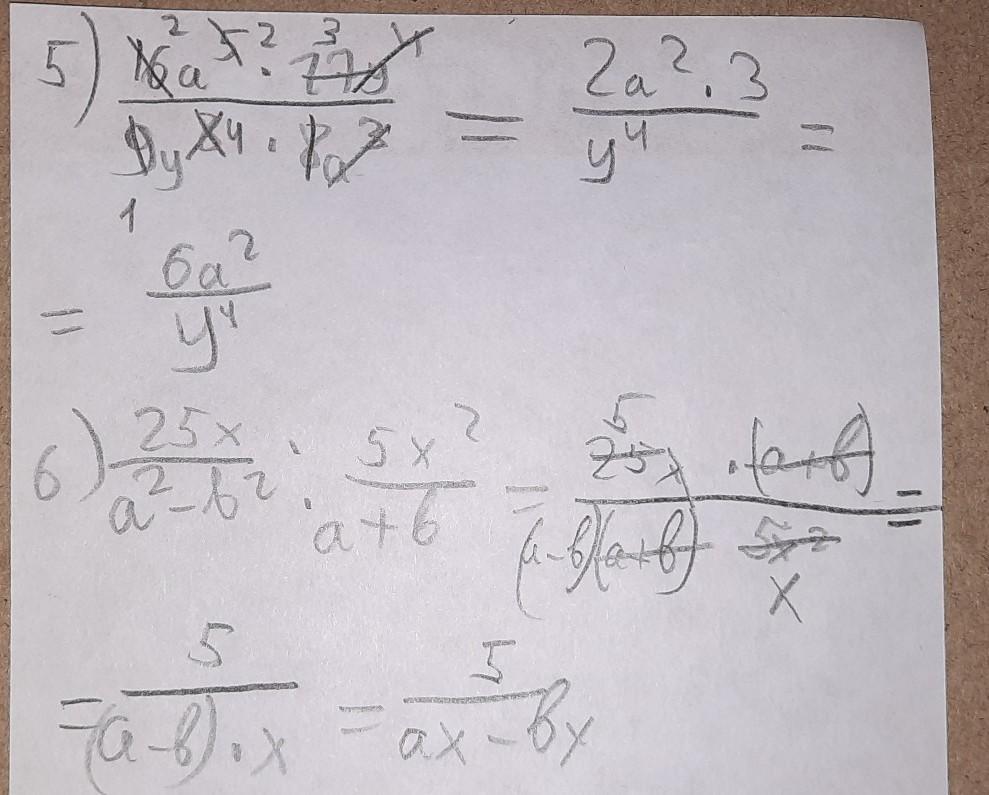 5) 16² a⁵ ² · 27³ y⁴ / 9 y⁸ ⁴ · 8 a³ = 2a² · 3 / y⁴ =
1
= 6a² / y⁴
6) 25x / a² - b² : 5x² / a + b = 25 5 x · (a+b) / (a-b)(a+b) 5x² x =
= 5 / (a-b) · x = 5 / ax - bx